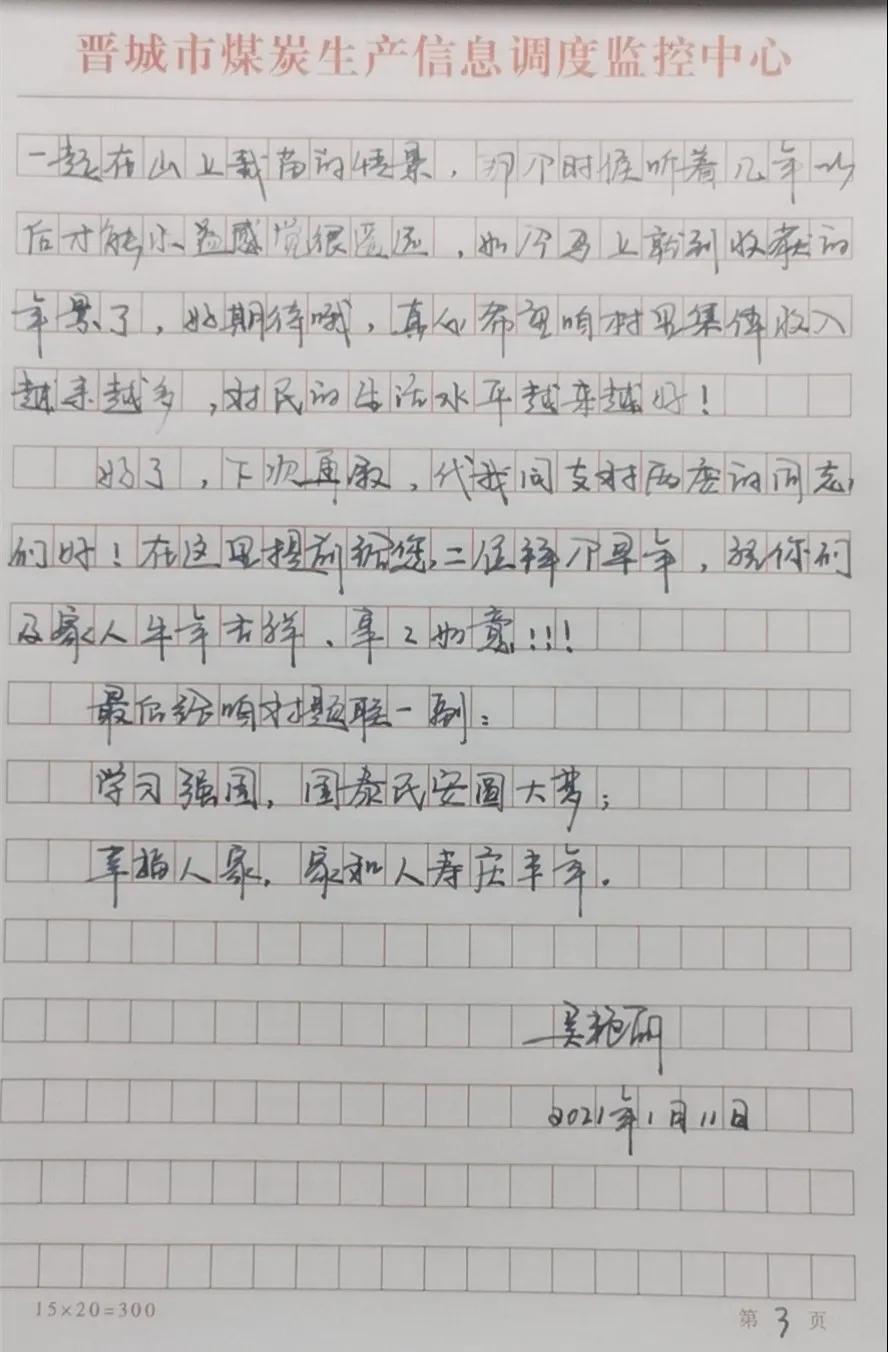 晋城市煤炭生产信息调度监控中心
一起在山上栽苗的情景，那个时候听着几年以
后才能见益感觉很遥远，如今马上就到收获的
年景了，好期待哦，真心希望咱村里集体收入
越来越多，村民的生活水平越来越好！
好了，下次再叙，代我问支村两委的同志
们好！在这里提前给您二位拜个早年，祝你们
及家人牛年吉祥、事々如意！！！
最后给咱村题联一副：
学习强国，国泰民安圆大梦；
幸福人家，家和人寿庆丰年。
2021年1月11日
15×20=300
第3页